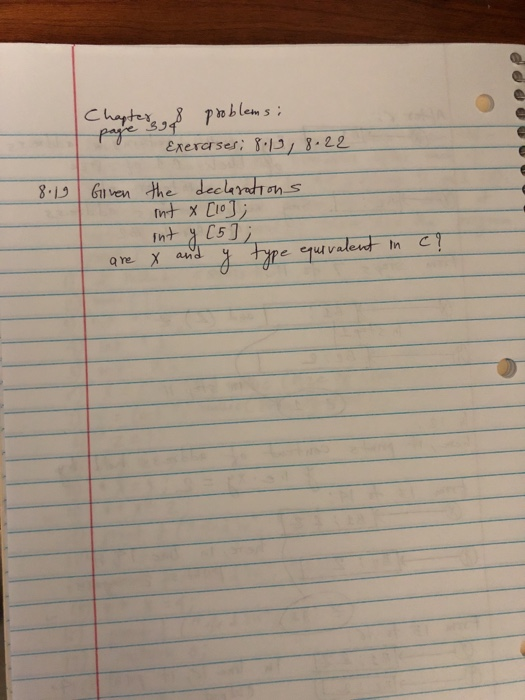 Chapter 8 problems:
page 394
Exercises: 8.19, 8.22
8.19 Given the declarations
int x [10];
int y [5];
are x and y type equivalent in C?